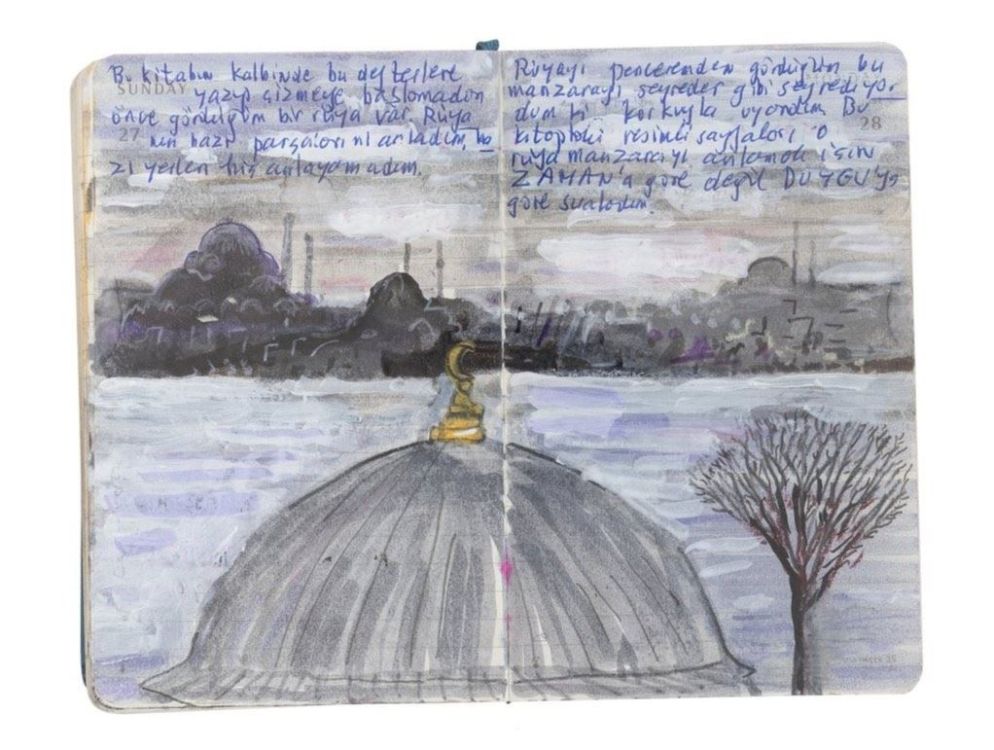 Bu kitabın kalbinde bu defterlere
SUNDAY
yazıp çizmeye başlamadan
önce gördüğüm bir rüya var. Rüya
27
nın bazı parçalarını anladım, ba
zı yerleri hiç anlayamadım.
Rüyayı penceremden gördüğüm bu
manzarayı seyreder gibi seyrediyor
dum ki korkuyla uyandım. Bu
28
kitaptaki resimli sayfaları o
rüya manzarayı anlamak için
ZAMAN'a göre değil DUYGUYA
göre sıraladım.